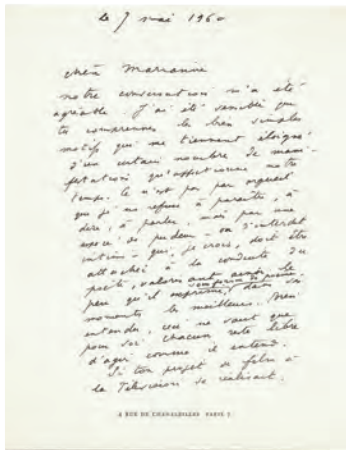 le 7 mai 1960
chère Marianne
notre conversation m'a été
agréable. J'ai été sensible que
tu comprennes les bien simples
motifs qui me tiennent éloigné
d'un certain nombre de mani-
festations qu'affectionne notre
temps. Ce n'est pas par orgueil
que je me refuse à paraître, à
dire, à parler, mais par une
espèce de pudeur - ou d'interdit
intime - qui, je crois, doit être
attaché à la conduite du
poète, valables ant avoir le
peu qu'il exprime, dans ses
moments les meilleurs. Bien
entendu, ceci ne vaut que
pour soi. Chacun reste libre
d'agir comme il entend.
Si ton projet de film à
la Télévision se réalisait.
4 RUE DE CHANALEILLES PARIS 7